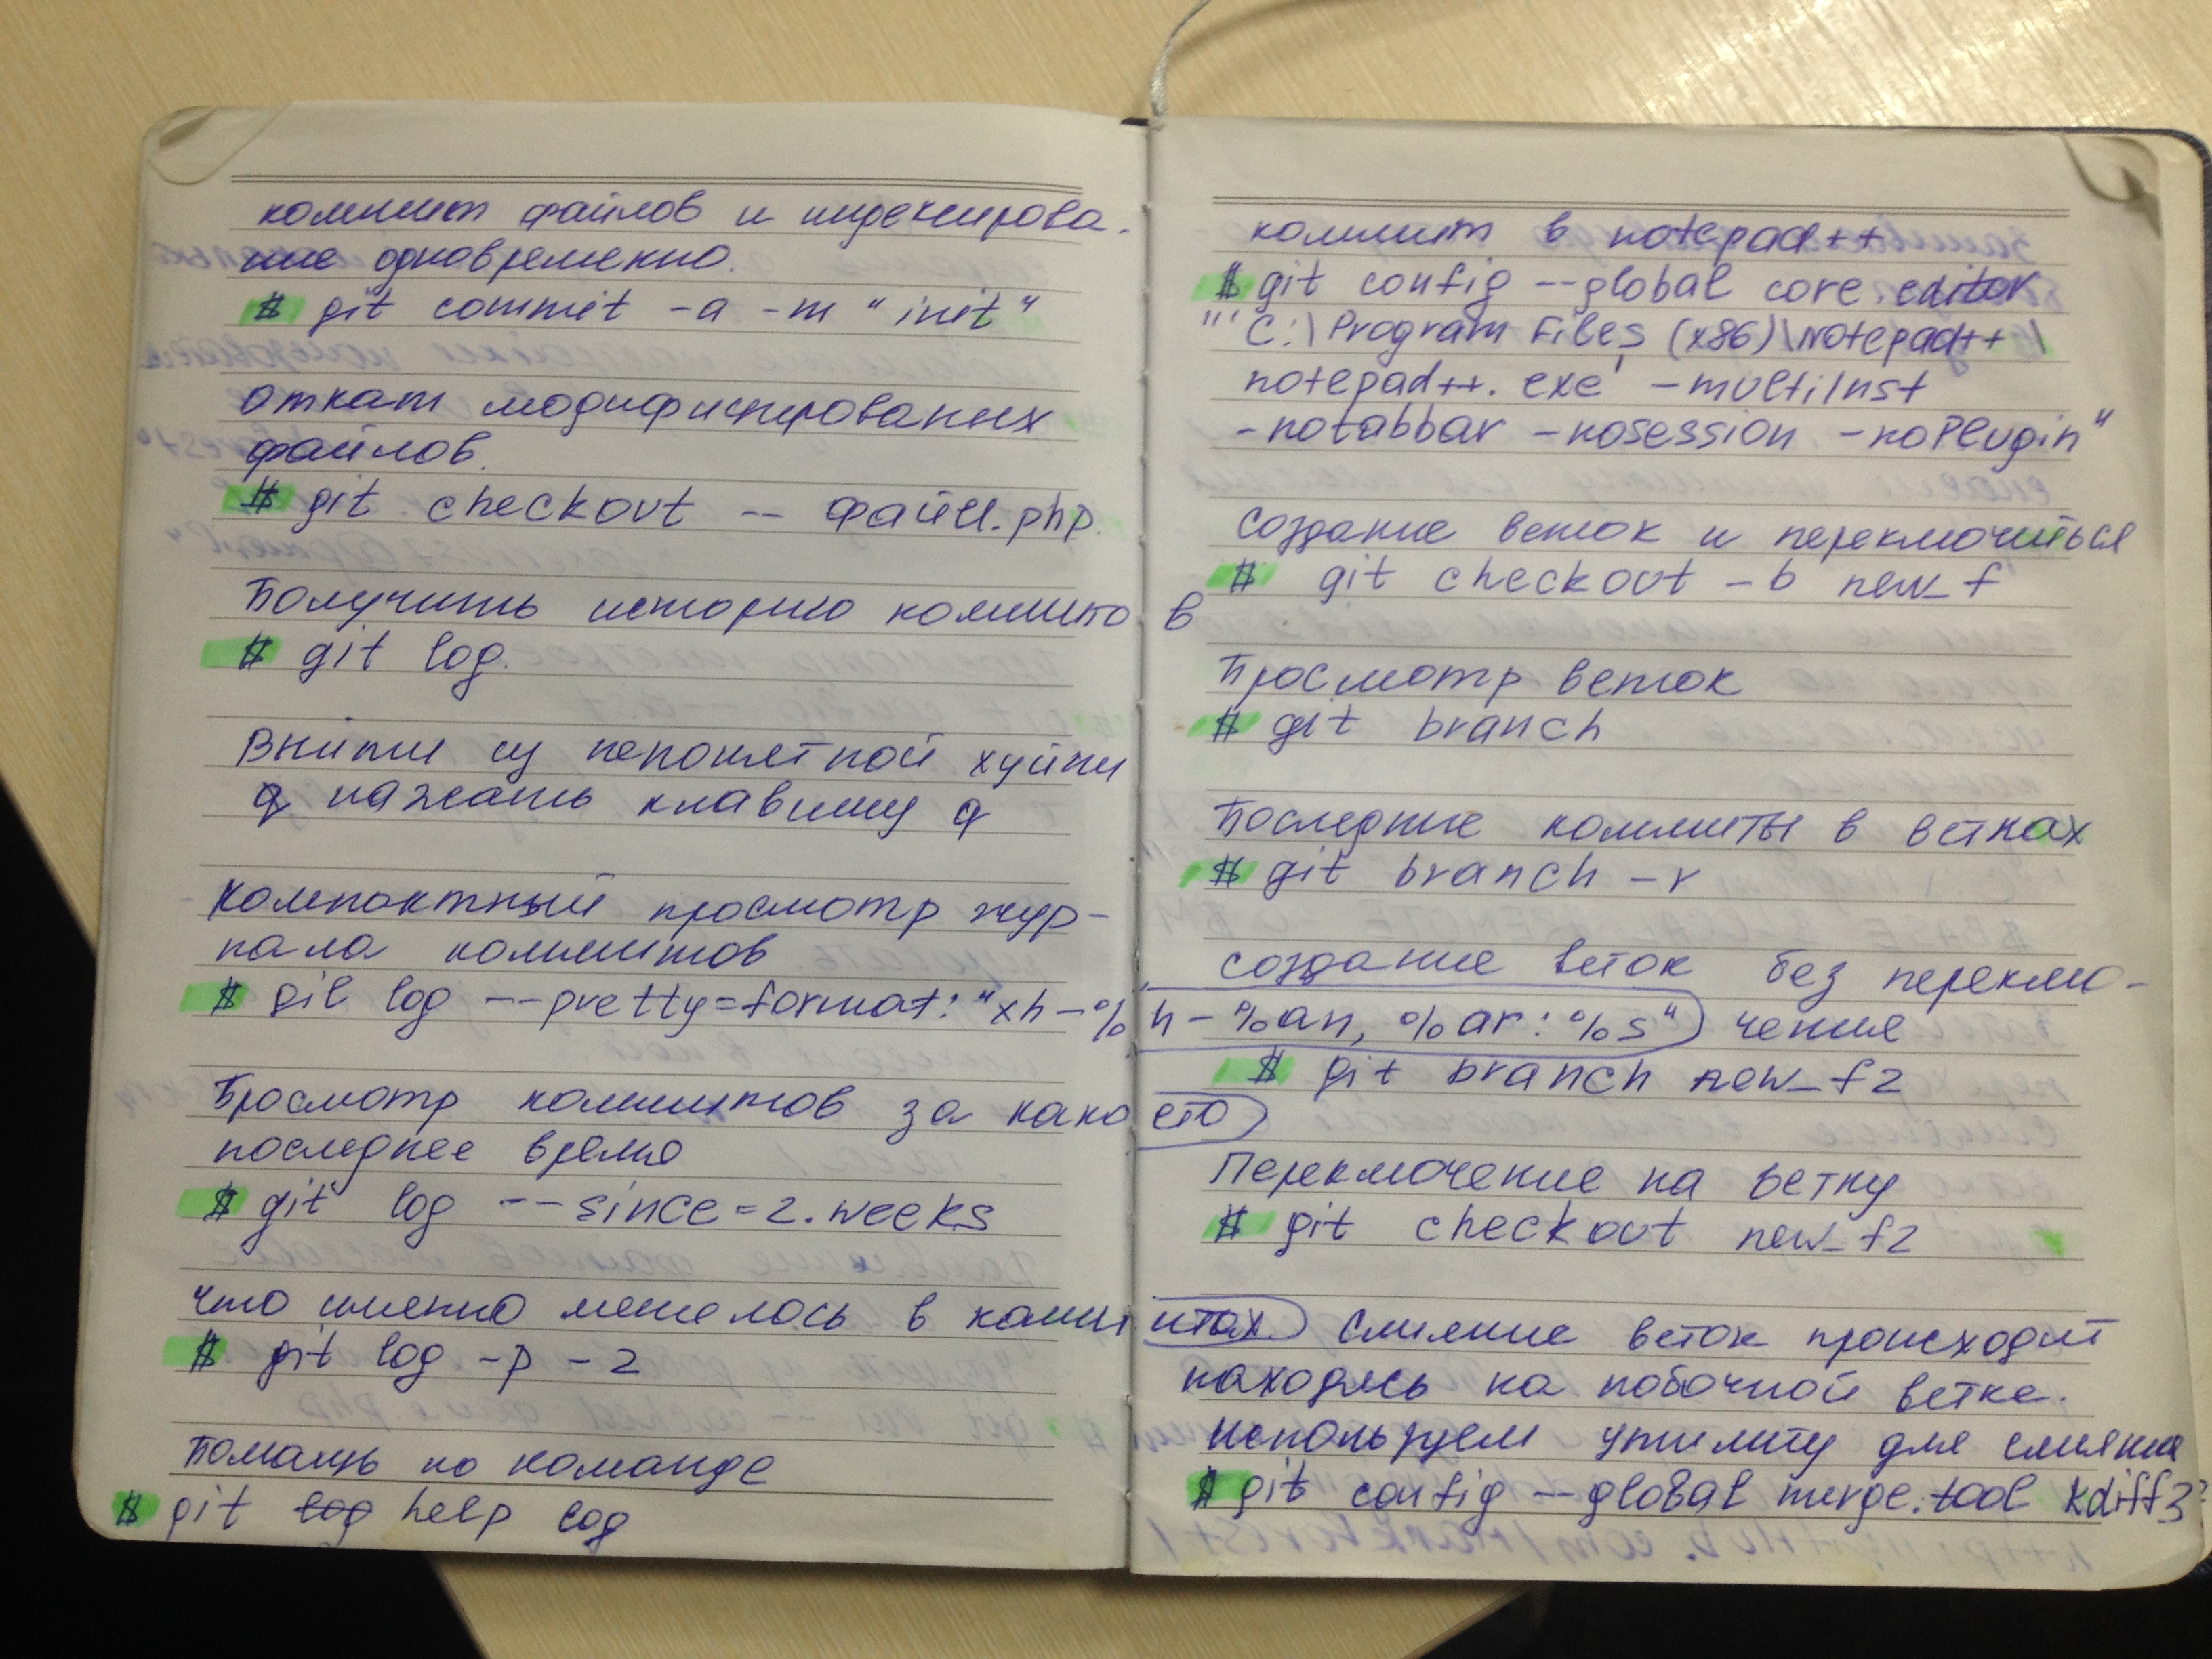 коммит файлов и индексирова-
ние одновременно
$ git commit -a -m "init"
откат модифицированых
файлов
$ git checkout -- файл.php
Получить историю коммитов
$ git log
Вийти із непонетной хуйни
q нажать клавишу q
Компактный просмотр жур-
нала коммитов
$ git log --pretty=format:"%h-%
h-%an, %ar: %s"
Просмотр коммитов за како
ето
последнее время
$ git log --since=2.weeks
что именно менелось в комм
итах
$ git log -p -2
Помощь по команде
$ git log help log
коммит в notepad++
$ git config --global core.editor
"'C:\Program Files (x86)\Notepad++\
notepad++.exe' -multiInst
-notabbar -nosession -noPlugin"
Создание веток и переключиться
$ git checkout -b new_f
Просмотр веток
$ git branch
Последние коммиты в ветках
$ git branch -v
создание веток без переклю-
чение
$ git branch new_f2
Переключение на ветку
$ git checkout new_f2
Слиение веток происходит
находясь на побочной ветке.
используем утилиту для слияния
$ git config --global merge.tool kdiff3